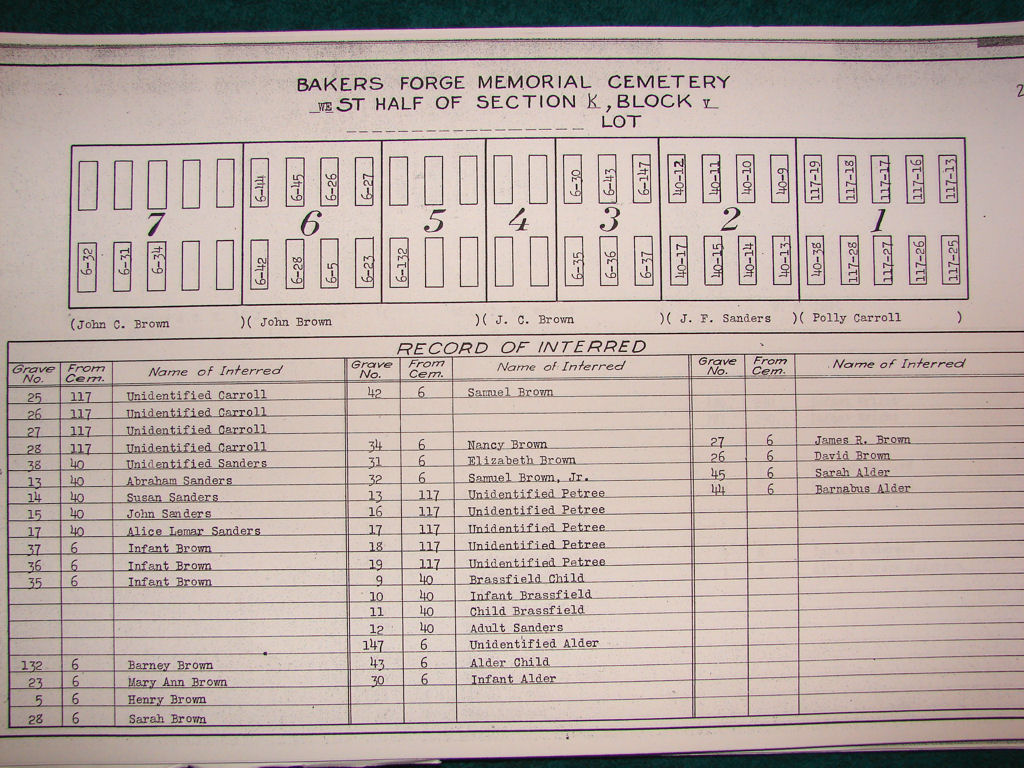 2
BAKERS FORGE MEMORIAL CEMETERY
WEST HALF OF SECTION K, BLOCK V
LOT
6-44 6-45 6-26 6-27 6-30 6-43 6-147 40-12 40-11 40-10 40-9 117-19 117-18 117-17 117-16 117-13
7 6 5 4 3 2 1
6-32 6-31 6-34 6-42 6-28 6-5 6-23 6-132 6-35 6-36 6-37 40-17 40-15 40-14 40-13 40-38 117-28 117-27 117-26 117-25
(John C. Brown )( John Brown )( J. C. Brown )( J. F. Sanders )( Polly Carroll )
RECORD OF INTERRED
Grave No. From Cem. Name of Interred Grave No. From Cem. Name of Interred Grave No. From Cem. Name of Interred
25 117 Unidentified Carroll 42 6 Samuel Brown
26 117 Unidentified Carroll
27 117 Unidentified Carroll
28 117 Unidentified Carroll 34 6 Nancy Brown 27 6 James R. Brown
38 40 Unidentified Sanders 31 6 Elizabeth Brown 26 6 David Brown
13 40 Abraham Sanders 32 6 Samuel Brown, Jr. 45 6 Sarah Alder
14 40 Susan Sanders 13 117 Unidentified Petree 44 6 Barnabus Alder
15 40 John Sanders 16 117 Unidentified Petree
17 40 Alice Lemar Sanders 17 117 Unidentified Petree
37 6 Infant Brown 18 117 Unidentified Petree
36 6 Infant Brown 19 117 Unidentified Petree
35 6 Infant Brown 9 40 Brassfield Child
10 40 Infant Brassfield
11 40 Child Brassfield
12 40 Adult Sanders
147 6 Unidentified Alder
132 6 Barney Brown 43 6 Alder Child
23 6 Mary Ann Brown 30 6 Infant Alder
5 6 Henry Brown
28 6 Sarah Brown